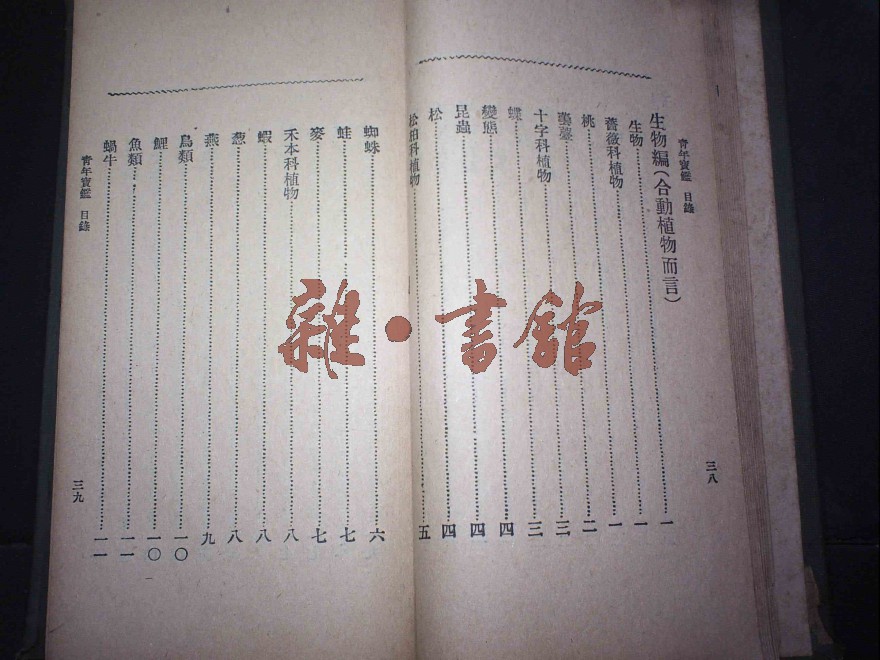 青年寶鑑 目錄
三八
生物編(合動植物而言)……一
生物……一
薔薇科植物……一
桃……二
蕓薹……三
十字科植物……三
蝶……四
變態……四
昆蟲……四
松……五
松柏科植物……
蜘蛛……六
蛙……七
麥……七
禾本科植物……八
蝦……八
葱……八
燕……九
鳥類……一〇
鯉……一〇
魚類……一一
蝸牛……一一
青年寶鑑 目錄
三九
雜·書館